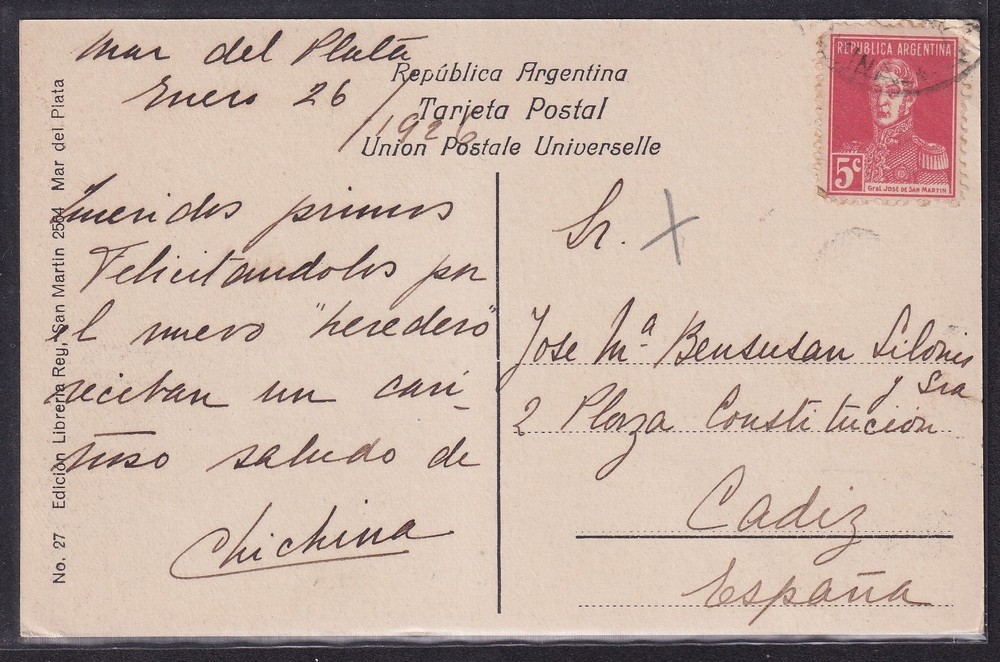 Mar del Plata
Enero 26/1926
República Argentina
Tarjeta Postal
Union Postale Universelle
Queridos primos
Felicitandolos por
el nuevo "heredero"
reciban un cari-
ñoso saludo de
Chichina
No. 27 Edición Librería Rey, San Martin 2564 Mar del Plata
REPUBLICA ARGENTINA
5c
Gral. José de San Martin
Sr.
Jose Mª Bensusan
y Sra
2 Plaza Constitución
Cadiz
España